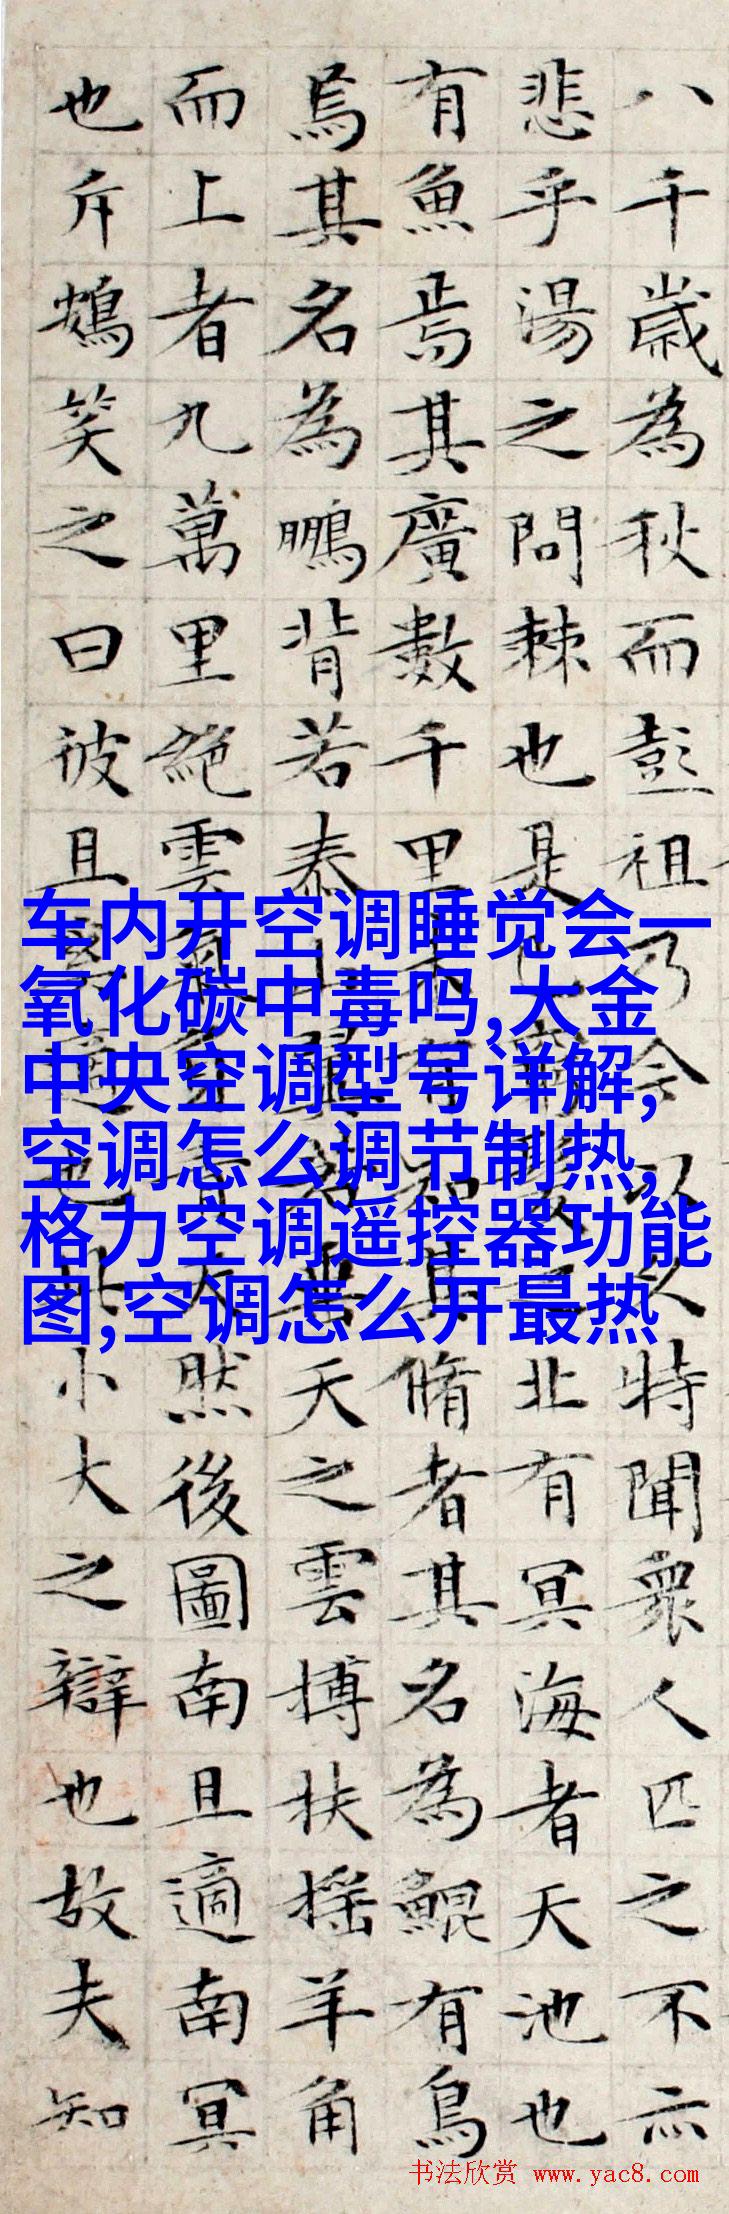 八千歲為秋而彭祖乃今以久特聞衆人匹之不亦
悲乎湯之問棘也是已窮髮之北有冥海者天池也
有魚焉其廣數千里未有知其脩者其名為鯤有鳥
焉其名為鵬背若泰山翼若垂天之雲搏扶摇羊角
而上者九萬里絶雲氣負青天然後圖南且適南冥
也斥鴳笑之曰彼且奚適也此小大之辯也故夫知
车内开空调睡觉会一
氧化碳中毒吗,大金
中央空调型号详解,
空调怎么调节制热,
格力空调遥控器功能
图,空调怎么开最热
书法欣赏 www.yac8.com